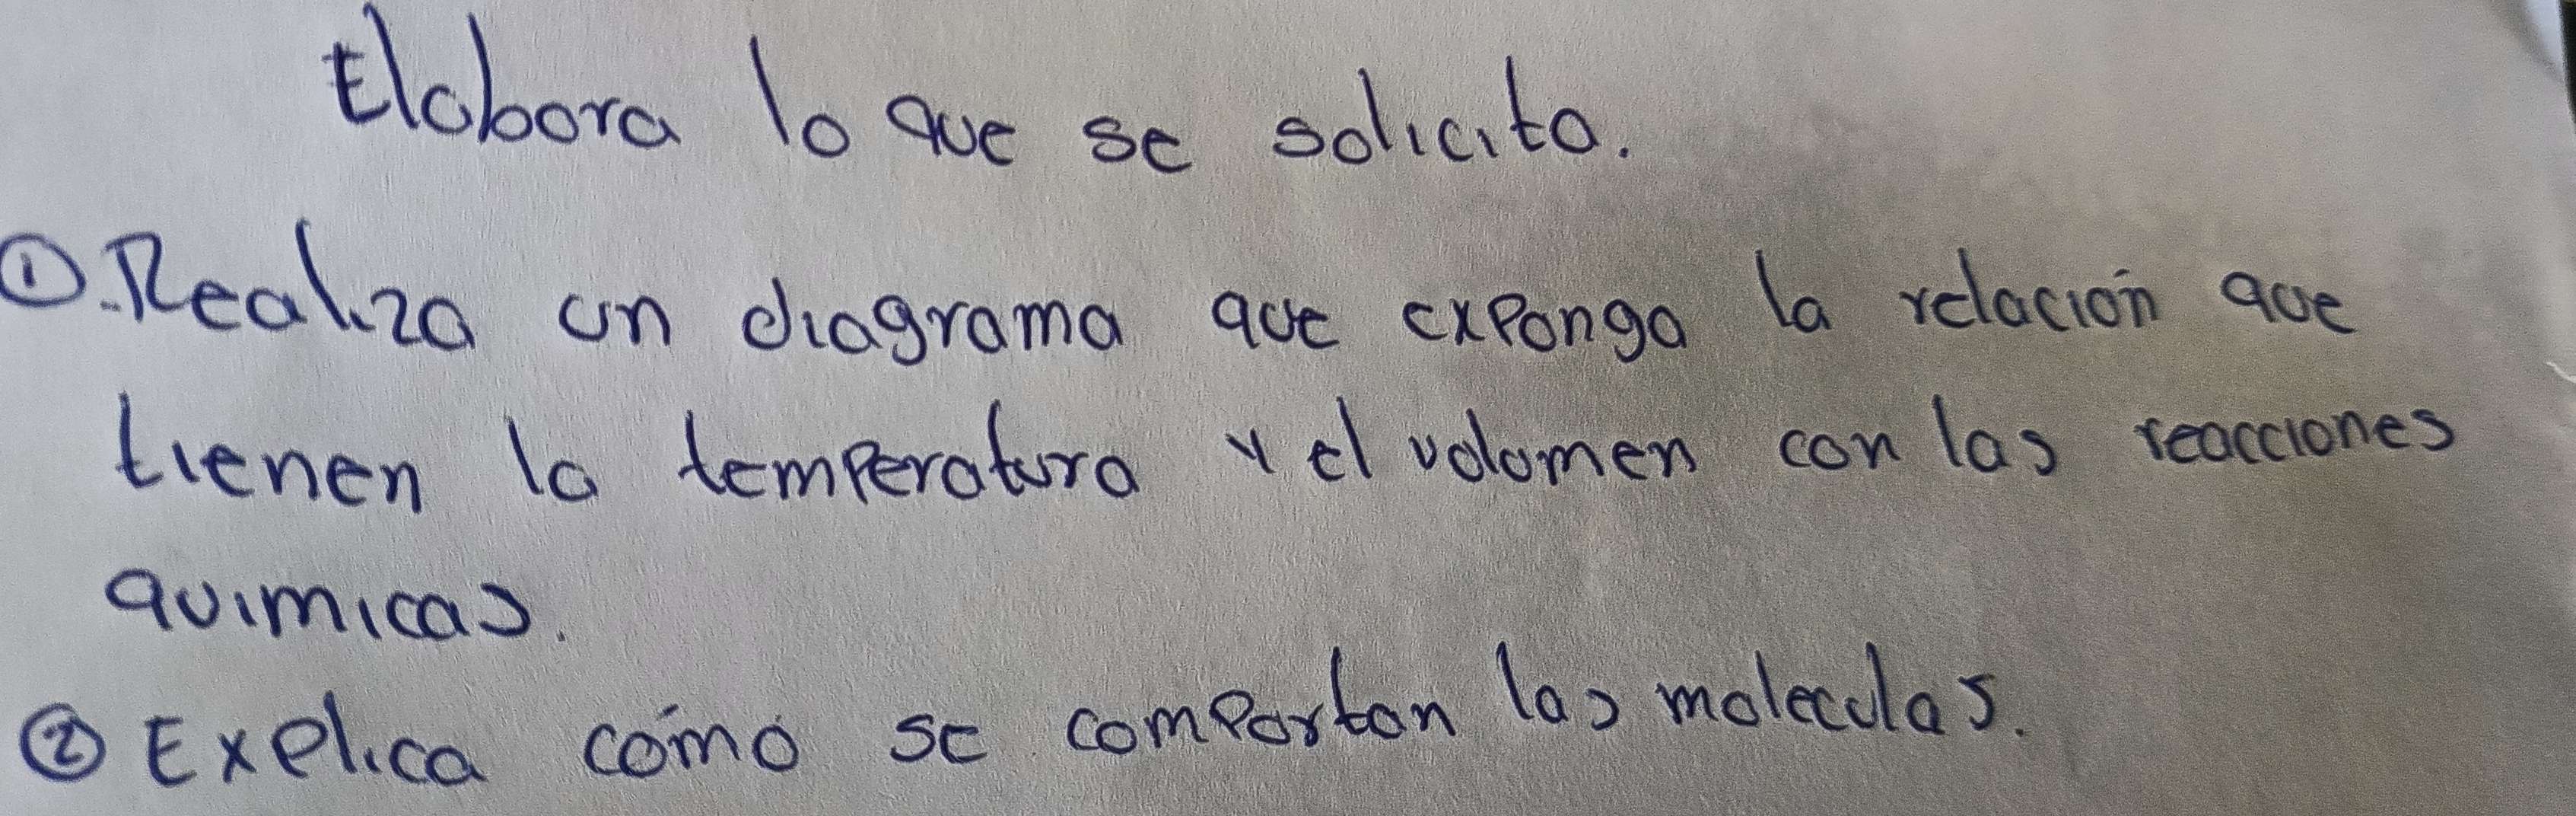 Elabora lo que se solicita.
①. Realiza un diagrama que exponga la relación que
tienen la temperatura y el volumen con las reacciones
quimicas.
② Explica cómo se comportan las moleculas.